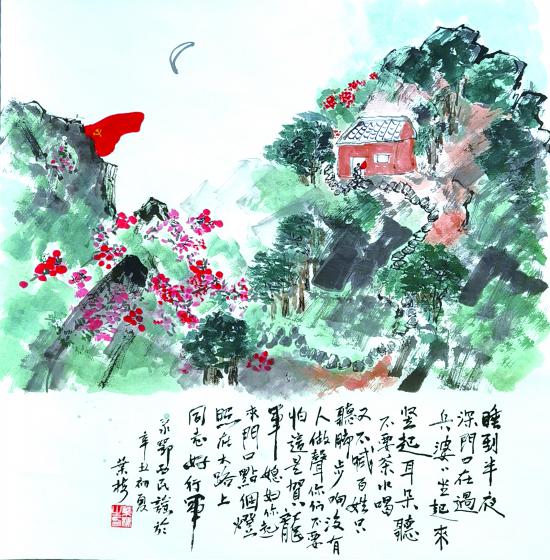 睡到半夜
深門口在過
兵婆〻坐起來
竖起耳朵聽
不要茶水喝
又不喊百姓只
聽脚步响没有
人做聲你们不要
怕這是賀龍
軍媳婦你起
來門口點個燈
照在大路上
同志好行軍
录鄂西民謠於
辛丑初夏
葉梅